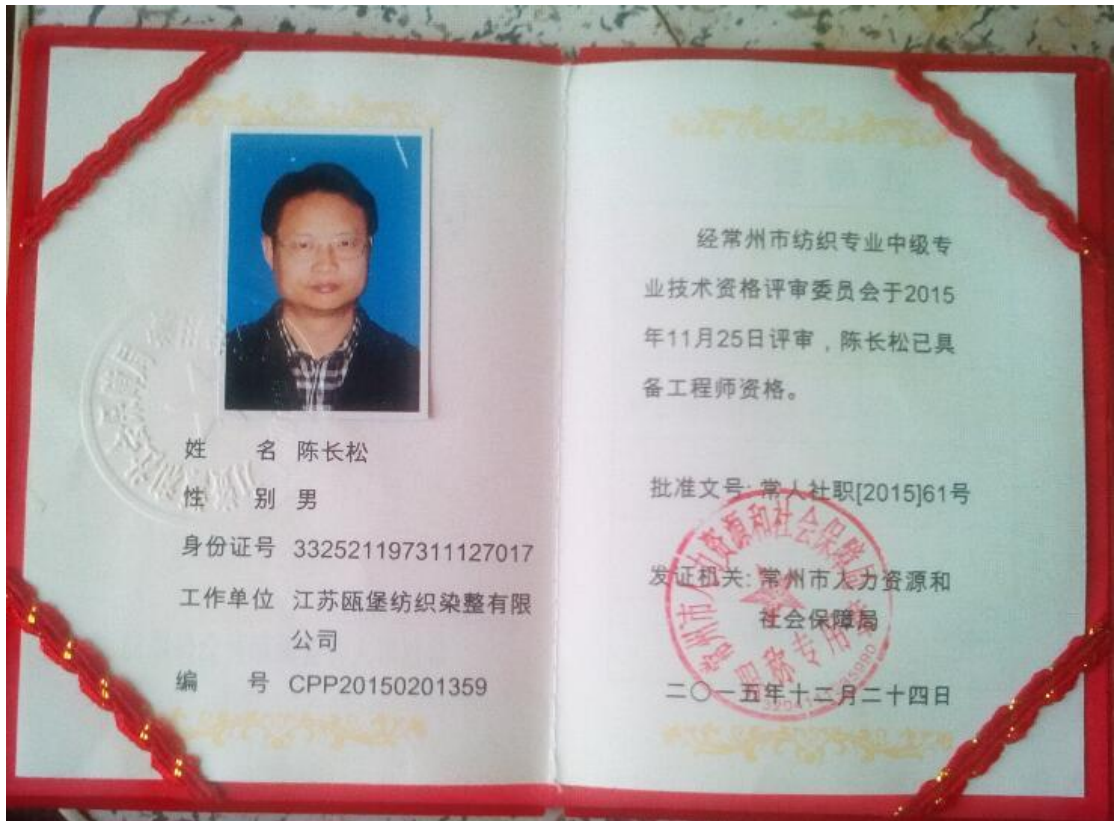 姓 名 陈长松
性 别 男
身份证号 332521197311127017
工作单位 江苏瓯堡纺织染整有限
公司
编 号 CPP20150201359
经常州市纺织专业中级专
业技术资格评审委员会于2015
年11月25日评审，陈长松已具
备工程师资格。
批准文号: 常人社职[2015]61号
发证机关: 常州市人力资源和
社会保障局
二〇一五年十二月二十四日
常州市人力资源和社会保障局
职称专用章